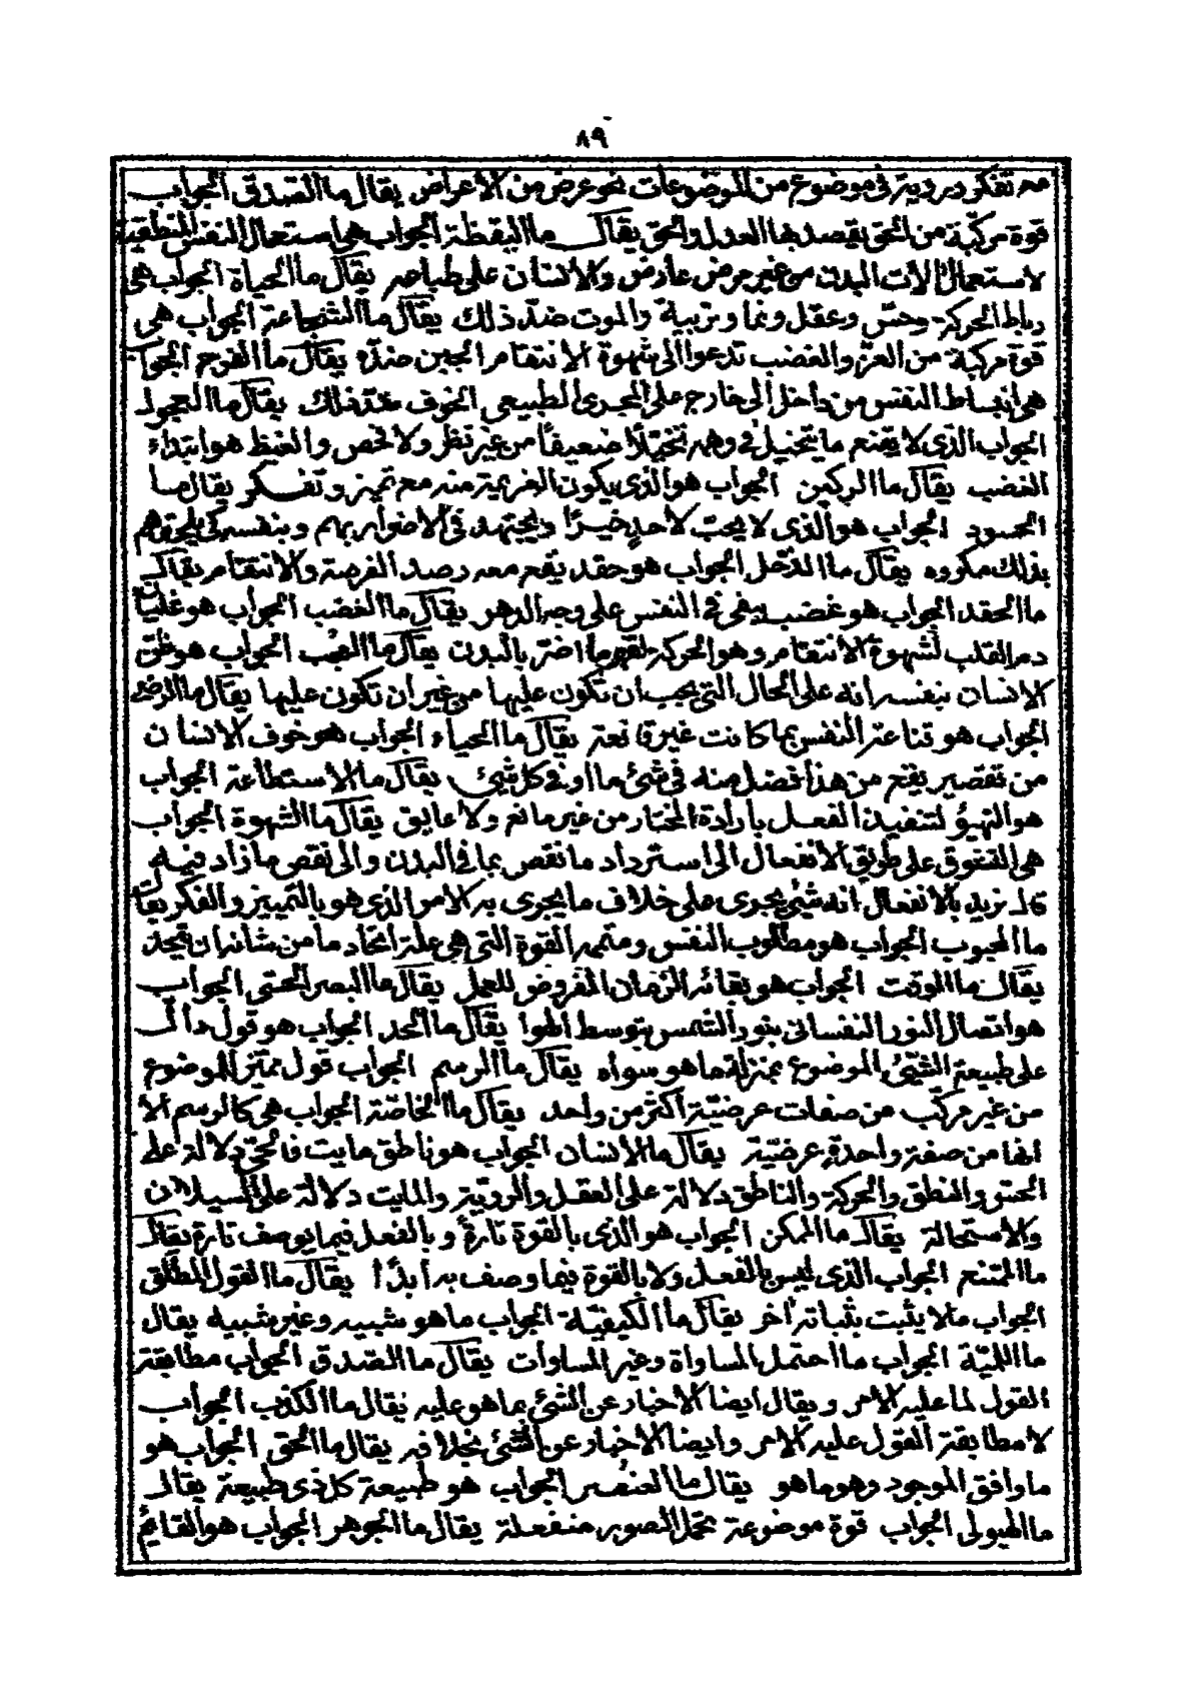 ٨٩
معه تفكر وروية فى موضوع من الموضوعات نحو عرض من الأعراض يقال ما الصدق الجواب
قوة مركبة من الحق يقصد بها العدل والحق يقال ما اليقظة الجواب هى استعمال النفس المنطقية
لاستعمال آلات البدن من غير مرض عارض والانسان على طباعه يقال ما الحياة الجواب هى
رباط الحركة وحس وعقل ونما وتربية والموت ضد ذلك يقال ما الشجاعة الجواب هى
قوة مركبة من العز والغضب تدعوا الى شهوة الانتقام الجبن ضده يقال ما الفرح الجوا
هى انبساط النفس من داخل الى خارج على المجرى الطبيعى الخوف ضد ذلك يقال ما العجول
الجواب الذى لا يقنع ما يتخيل فى وهمه تخيلا ضعيفا من غير نظر ولا فحص والغيظ هو ابتداء
الغضب يقال ما الركين الجواب هو الذى يكون الغريمة منه مع تميز وتفكر يقال ما
الحسود الجواب هو الذى لا يحب لأحد خيرا ويجتهد فى الاضرار بهم وبنفسه كى يلحقهم
بذلك مكروه يقال ما الذحل الجواب هو حقد يقع معه رصد الفرصة والانتقام يقال
ما الحقد الجواب هو غضب يبقى فى النفس على وجه الدهر يقال ما الغضب الجواب هو غليان
دم القلب لشهوة الانتقام وهو الحركة لقهر ما اضر بالبدن يقال ما العجب الجواب هو ظن
الانسان بنفسه انه على الحال التى يجب ان تكون عليها من غير ان تكون عليها يقال ما الرضى
الجواب هو قناعة النفس بما كانت غير قانعة يقال ما الحياء الجواب هو خوف الانسان
من تقصير يقع من هذا فضل منه فى شئ ما او فى كل شئ يقال ما الاستطاعة الجواب
هو التهيؤ لتنفيذ الفعل بارادة المختار من غير مانع ولا عايق يقال ما الشهوة الجواب
هى التشوق على طريق الانفعال الى استرداد ما نقص بما فى البدن والى نقص ما زاد فيه
قال نريد بالانفعال انه شئ يجرى على خلاف ما يجرى به الامر الذى هو بالتمييز والفكر يقال
ما المحبوب الجواب هو مطلوب النفس ومتممه القوة التى هى علة اتحاد ما من شانه ان يتحد
يقال ما الوقت الجواب هو بقائه الزمان المفروض للعمل يقال ما البصر الحسى الجواب
هو اتصال النور النفسانى بنور الشمس بتوسط الهوا يقال ما الحد الجواب هو قول دال
على طبيعة الشئ الموضوع بمنزلة ما هو سواه يقال ما الرسم الجواب قول مميز للموضوع
من غير مركب من صفات عرضية أكثر من واحد يقال ما الخاصة الجواب هى كالرسم الا
انها من صفة واحدة عرضية يقال ما الانسان الجواب هو ناطق مايت فالحى دلالة على
الحس والمنطق والحركة والناطق دلالة على العقل والروية والمايت دلالة على السيلان
والاستحالة يقال ما الممكن الجواب هو الذى بالقوة تارة وبالفعل فيما يوصف تارة يقال
ما الممتنع الجواب الذى ليس بالفعل ولا بالقوة فيما وصف به أبدا يقال ما القول المطلق
الجواب ما لا يثبت بثباته آخر يقال ما الكيفية الجواب ما هو شبيه وغير شبيه يقال
ما الكمية الجواب ما احتمل المساواة وغير المساوات يقال ما الصدق الجواب مطابقة
القول لما عليه الامر ويقال ايضا الاخبار عن الشئ بما هو عليه يقال ما الكذب الجواب
لا مطابقة القول عليه الامر وايضا الاخبار عن الشئ بخلافه يقال ما الحق الجواب هو
ما وافق الموجود وهو ما هو يقال ما العنصر الجواب هو طبيعة كل ذى طبيعة يقال
ما الهيولى الجواب قوة موضوعة تحمل الصور منفعلة يقال ما الجوهر الجواب هو القائم